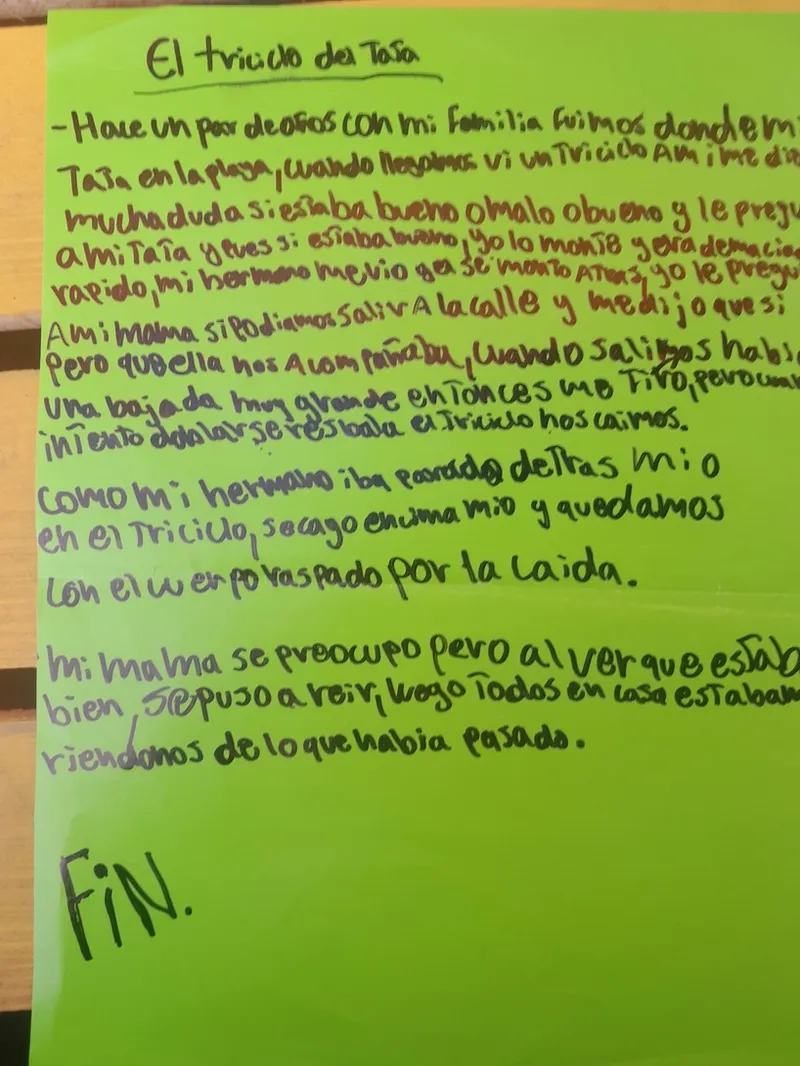 El triciclo del Tata
-Hace un par de años con mi familia fuimos donde mi
Tata en la playa, cuando llegamos vi un Triciclo A mi me dio
mucha duda si estaba bueno o malo o bueno y le pregu
a mi Tata y eves si estaba bueno, yo lo monte y era demacia
rapido, mi hermano me vio y el se monto Atras, yo le pregu
A mi mama si podiamos salir A la calle y me dijo que si
pero que ella nos Acompañaba, cuando salimos habi
una bajada muy grande entonces me Tiro, pero
intento se resbala el Triciclo nos caimos.
Como mi hermano iba parado detras mio
en el Triciclo, se cago encima mio y quedamos
con el cuerpo raspado por la caida.
mi mama se preocupo pero al ver que estab
bien, se puso a reir, luego Todos en casa estabam
riendonos de lo que habia pasado.
FiN.